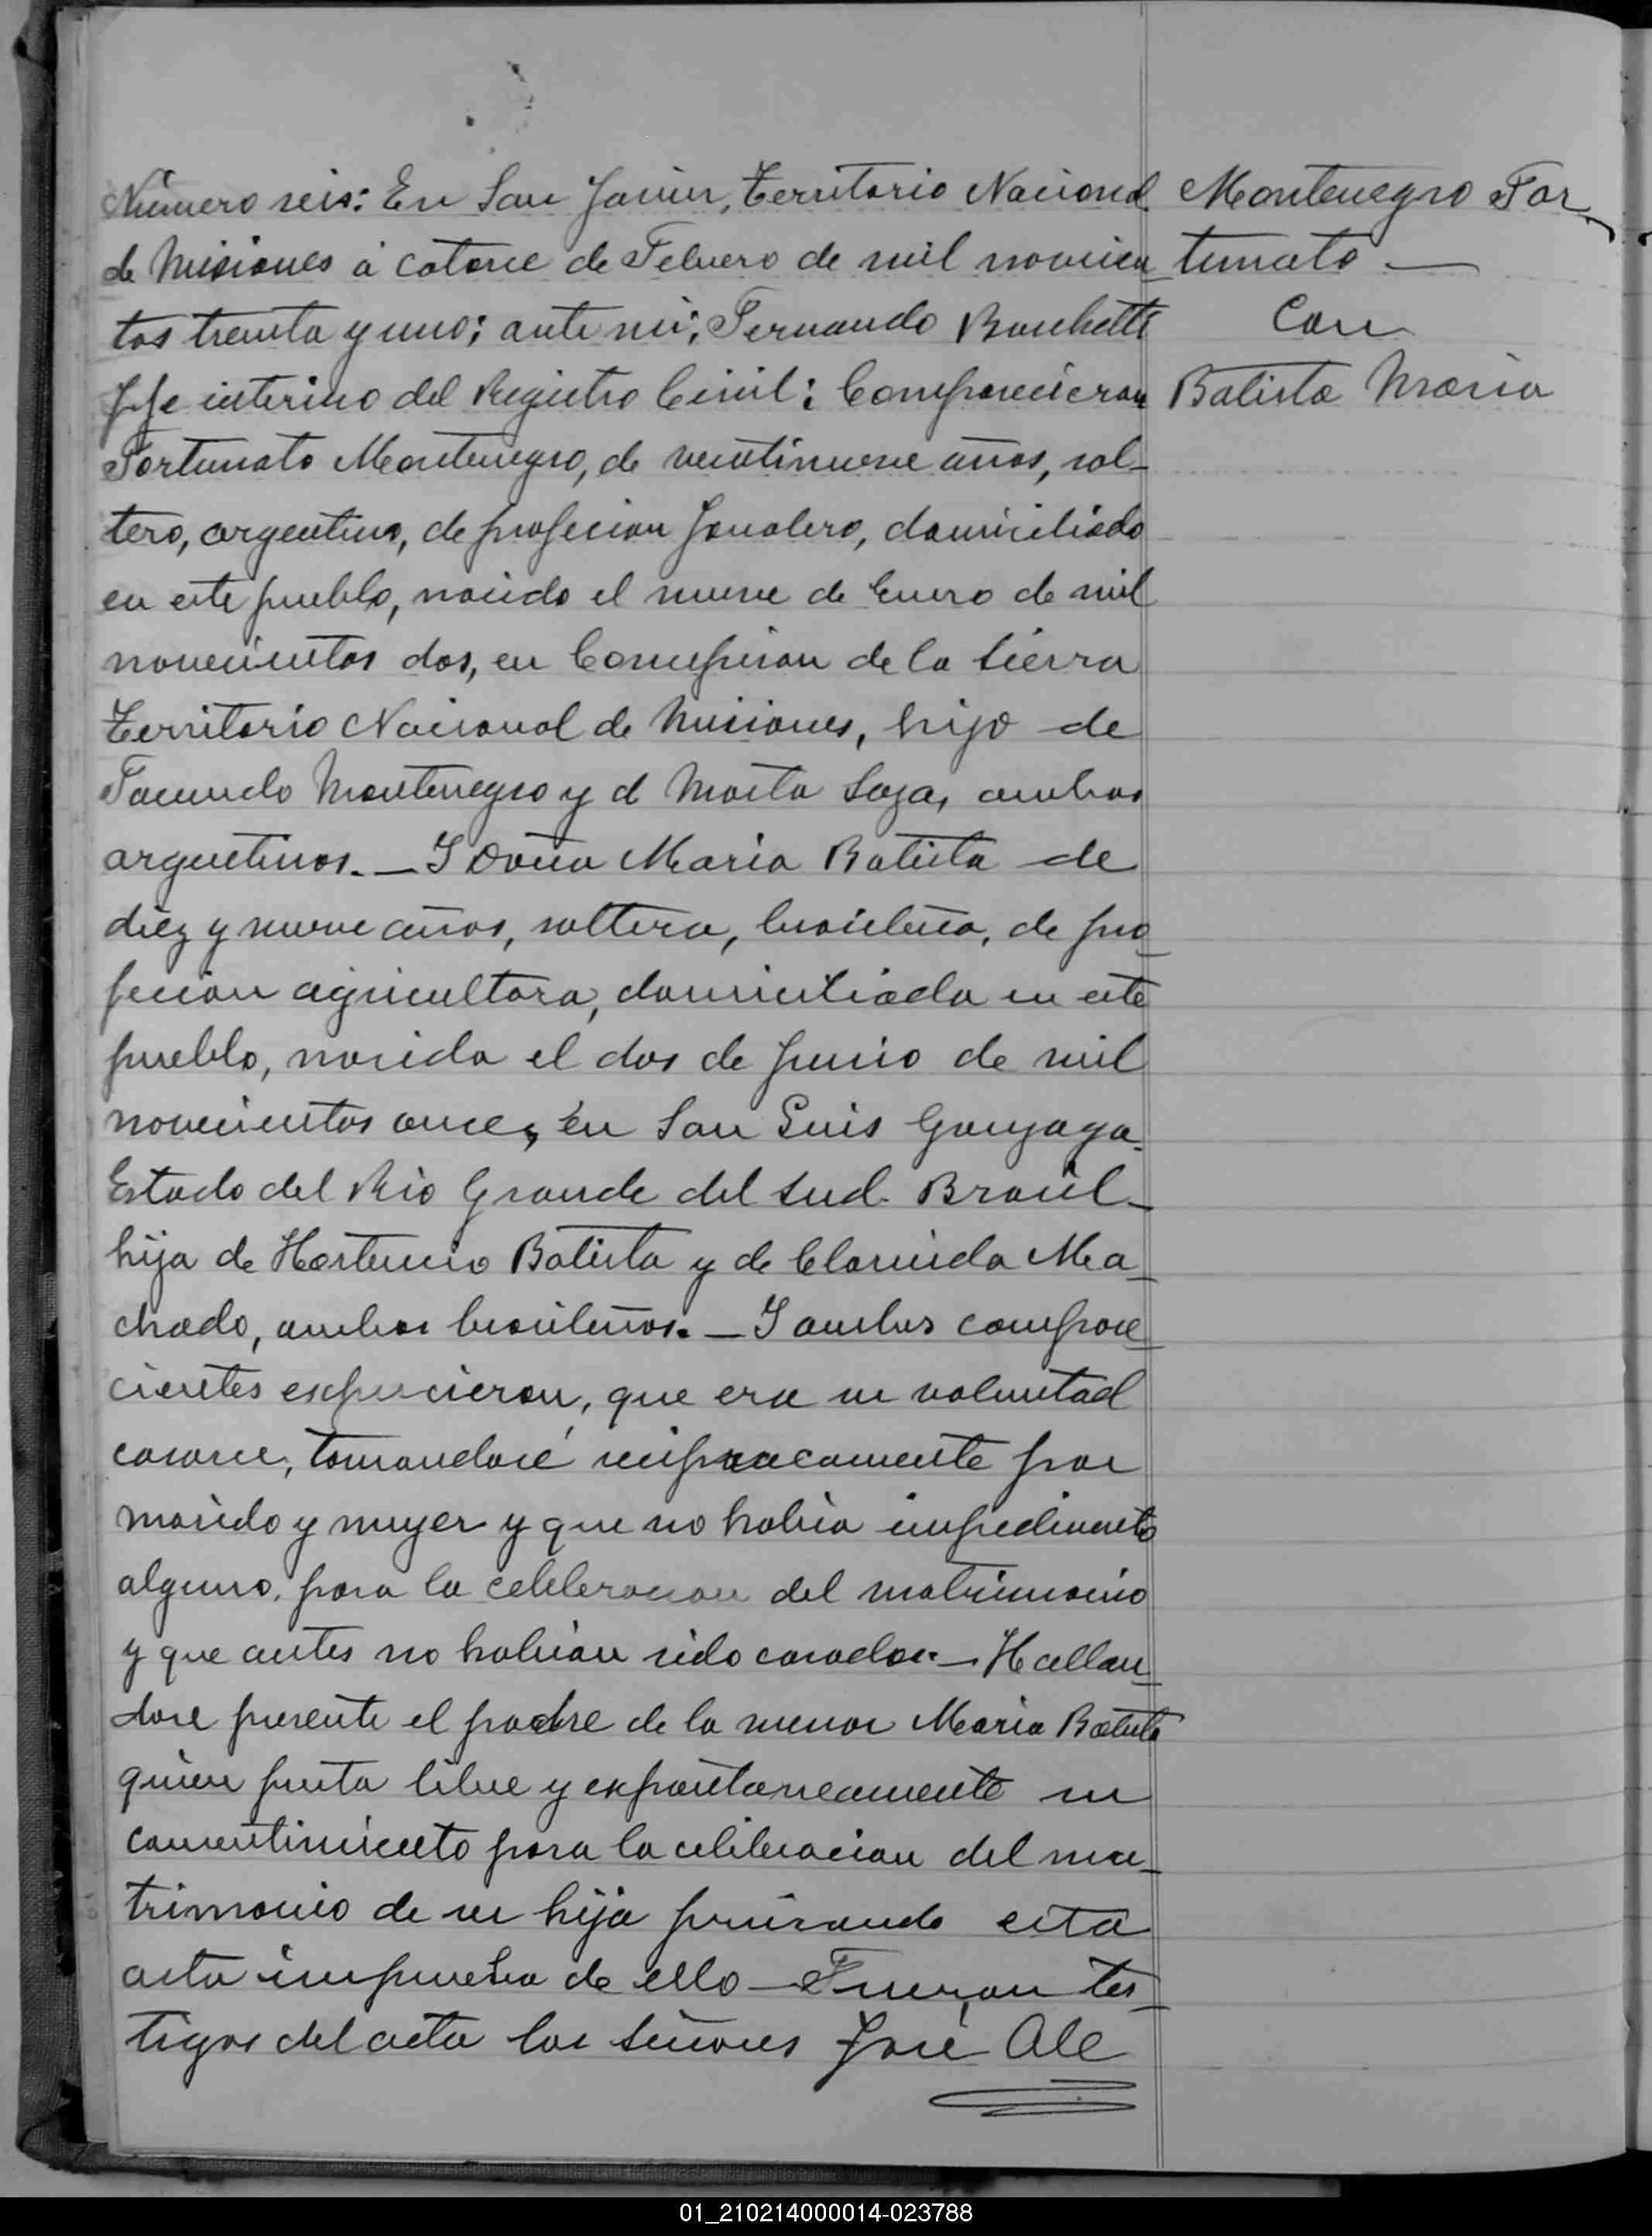 Número seis: En San Javier, Territorio Nacional
de Misiones á catorce de Febrero de mil novicien
tos treinta y uno; ante mi; Fernando
Jefe interino del Registro Civil: Comparecieron
Fortunato Montenegro, de veintinueve años, sol-
tero, argentino, de profecion Jornalero, domiciliado
en este pueblo, nacido el nueve de Enero de mil
novecientos dos, en Concepcion de la Sierra
Territorio Nacional de Misiones, hijo de
Facundo Montenegro y d Marta, ambos
argentinos. - I Doña Maria Batista de
diez y nueve años, soltera, brasileña, de pro
fecion agricultora, domiciliada en este
pueblo, nacida el dos de Junio de mil
novecientos once, en San Luis Gonzaga-
Estado del Rio Grande del Sud. Brasil-
hija de Hortencio Batista y de Clarinda Ma-
chado, ambos brasileños. - I ambos compare-
cientes expucieron, que era su voluntad
casarse, tomandosé reciprocamente por
marido y mujer y que no habia impedimento
alguno, para la celebracion del matrimonio
y que antes no habian sido casados. - Hallan-
dose presente el padre de la menor Maria Batista
quien presta libre y expontaneamente su
consentimiento para la celebracion del ma-
trimonio de su hija firmando esta
acta en prueba de ello - Fueron tes-
tigos del acta los Señores José Ale
Montenegro For-
tunato -
Con
Batista Maria
01_210214000014-023788